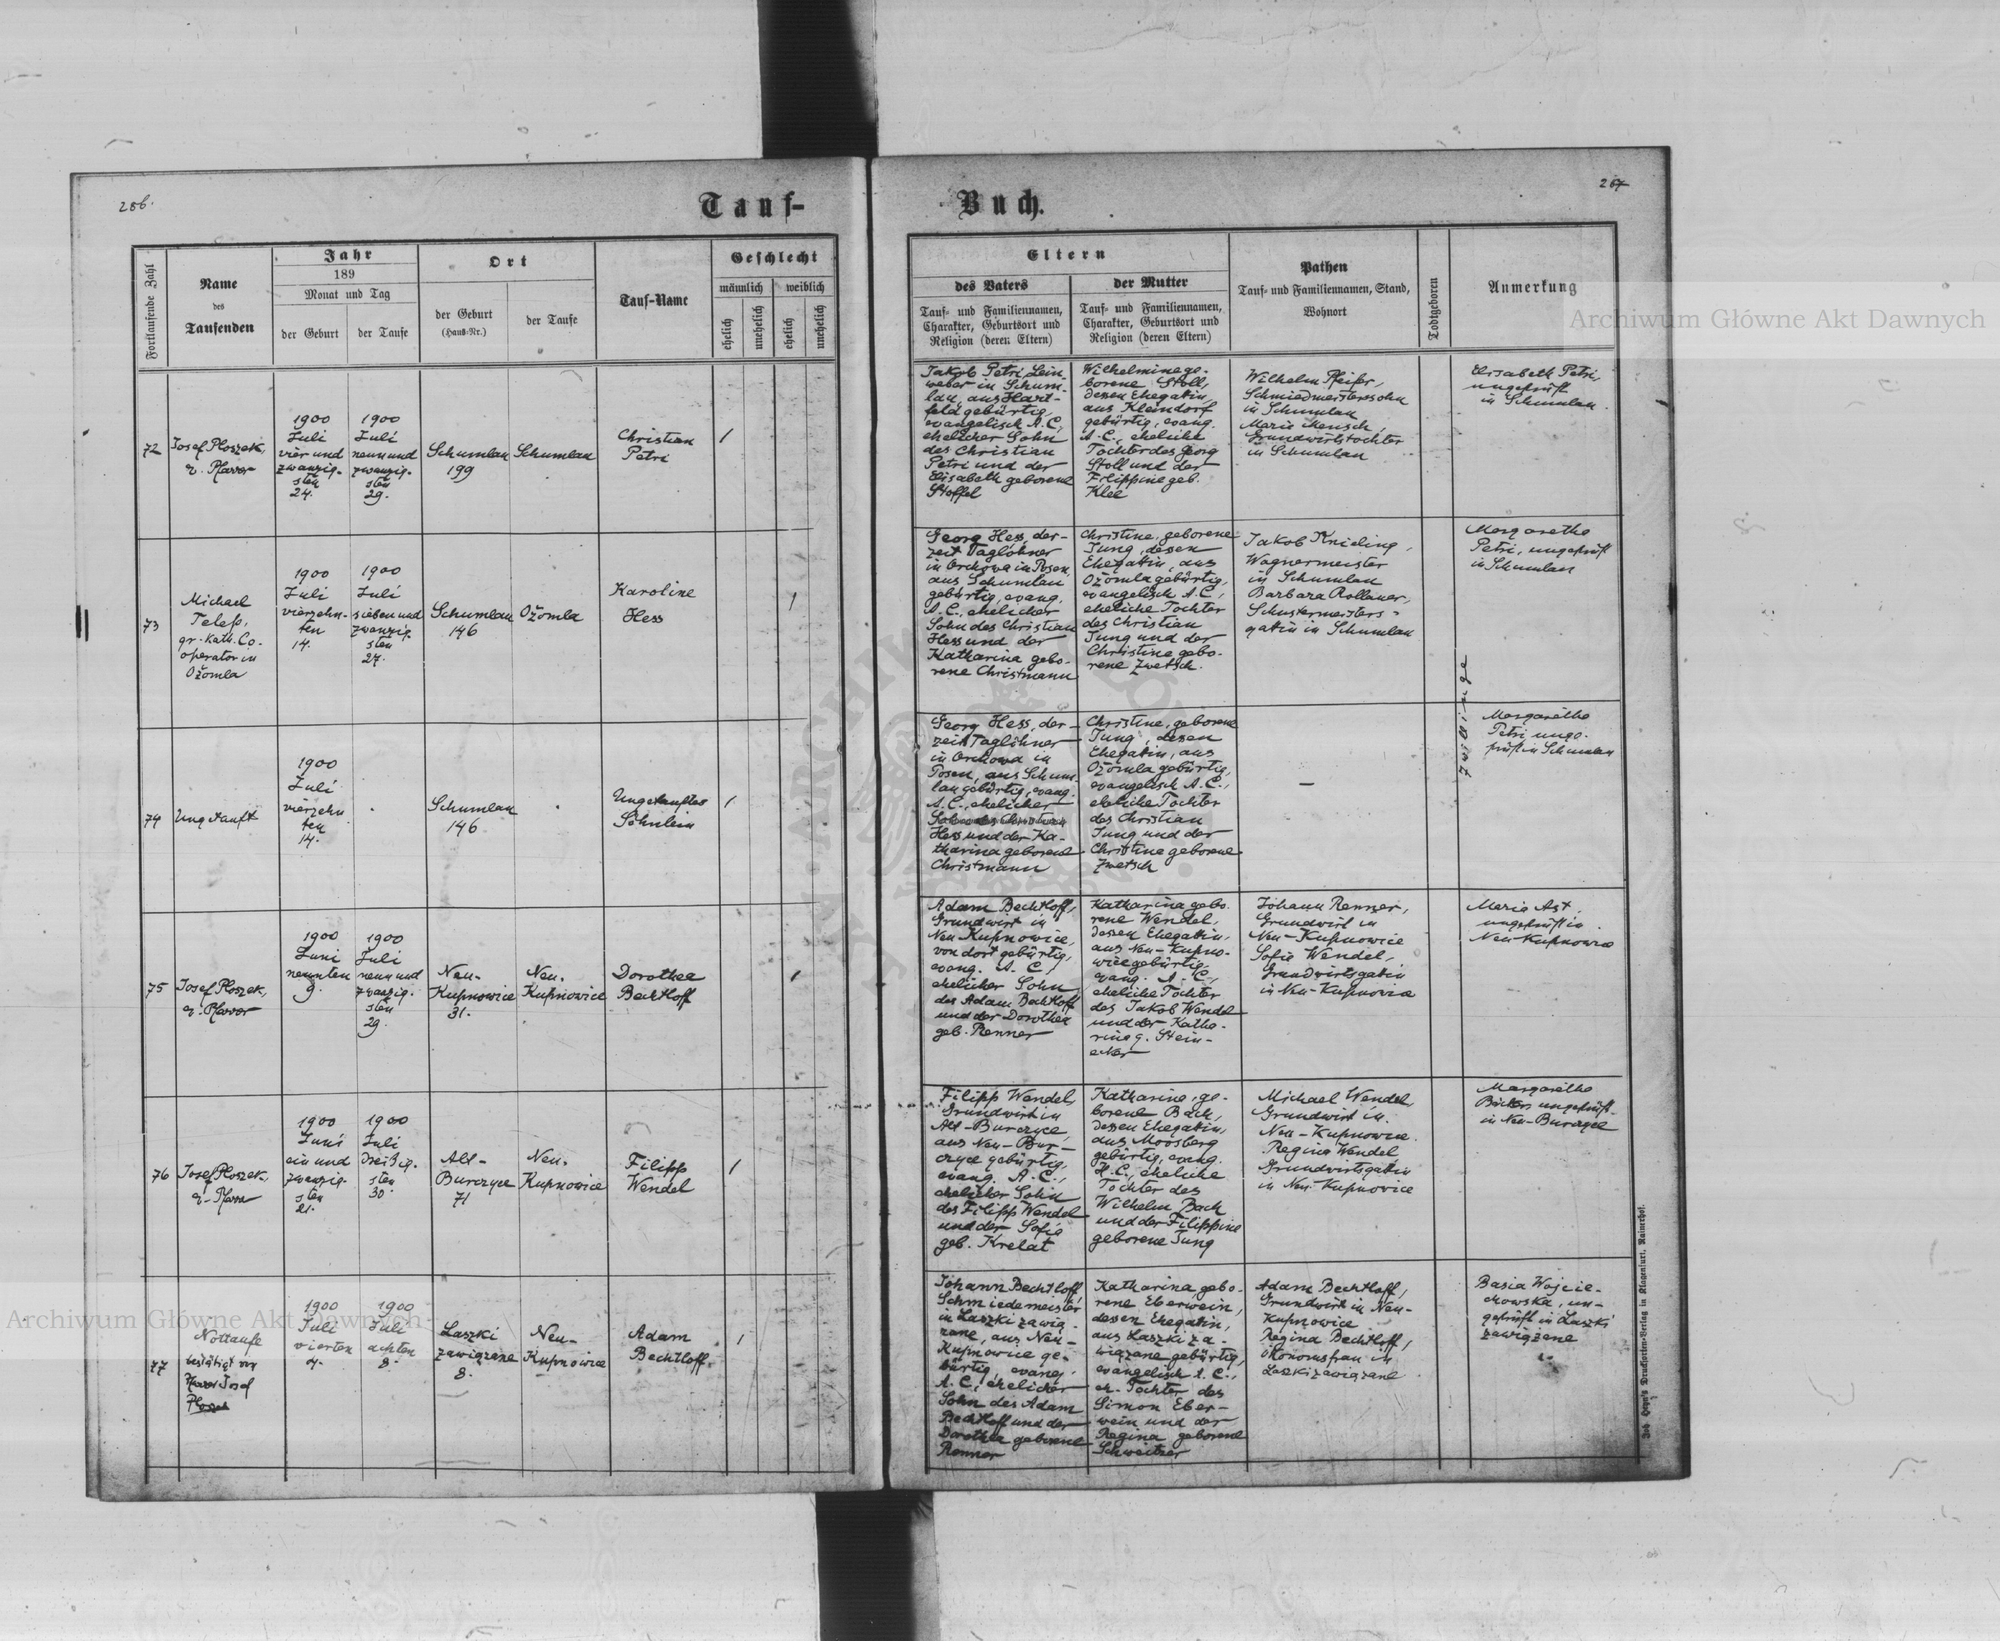 286.
Tauf-
Buch.
267
Fortlaufende Zahl
Name
des
Taufenden
Jahr
189
Monat und Tag
der Geburt
der Taufe
Ort
der Geburt
(Haus-Nr.)
der Taufe
Tauf-Name
Geschlecht
männlich
weiblich
ehelich
unehelich
ehelich
unehelich
Eltern
des Vaters
Tauf- und Familiennamen,
Charakter, Geburtsort und
Religion (deren Eltern)
der Mutter
Tauf- und Familiennamen,
Charakter, Geburtsort und
Religion (deren Eltern)
Pathen
Tauf- und Familiennamen, Stand,
Wohnort
Todtgeboren
Anmerkung
Archiwum Główne Akt Dawnych
72
Josef Ploszek,
ev. Pfarrer
1900
Juli
vier und
zwanzig-
sten
24.
1900
Juli
neun und
zwanzig-
sten
29.
Schumlau
199
Schumlau
Christian
Petri
1
Jakob Petri, Lein-
weber in Schum-
lau, aus Hart-
feld gebürtig,
evangelisch A.C.,
ehelicher Sohn
des Christian
Petri und der
Elisabeth geborene
Stoffel
Wilhelmine ge-
borene Stoll,
dessen Ehegatin,
aus Kleindorf
gebürtig, evang.
A.C., eheliche
Tochter des Georg
Stoll und der
Filippine geb.
Klee
Wilhelm Pfeifer,
Schmiedmeisterssohn
in Schumlau
Marie Mensch,
Grundwirtstochter
in Schumlau
Elisabeth Petri,
ungeprüft
in Schumlau
73
Michael
Telep,
gr. kath. Co-
operator in
Ożomla
1900
Juli
vierzehn-
ten
14.
1900
Juli
sieben und
zwanzig-
sten
27.
Schumlau
146
Ożomla
Karoline
Hess
1
Georg Hess, der-
zeit Taglöhner
in Orchowa in Posen,
aus Schumlau
gebürtig, evang.
A.C., ehelicher
Sohn des Christian
Hess und der
Katharina gebo-
rene Christmann
Christine, geborene
Jung, dessen
Ehegatin, aus
Ożomla gebürtig,
evangelisch A.C.,
eheliche Tochter
des Christian
Jung und der
Christine gebo-
rene Zwetsch.
Jakob Knieling,
Wagnermeister
in Schumlau
Barbara Rollauer,
Schustermeisters-
gatin in Schumlau
Margaretha
Petri, ungeprüft
in Schumlau
Zwillinge
74
Ungetauft
1900
Juli
vierzehn
ten
14.
Schumlau
146
Ungetauftes
Söhnlein
1
Georg Hess, der-
zeit Taglöhner
in Orchowa in
Posen, aus Schum-
lau gebürtig, evang.
A.C., ehelicher
Sohn des Christian
Hess und der Ka-
tharina geborene
Christmann
Christine, geborene
Jung, dessen
Ehegatin, aus
Ożomla gebürtig,
evangelisch A.C.,
eheliche Tochter
des Christian
Jung und der
Christine geborene
Zwetsch
—
Margaretha
Petri unge-
prüft in Schumlau
75
Josef Ploszek,
ev. Pfarrer
1900
Juni
neunten
9.
1900
Juli
neun und
zwanzig-
sten
29.
Neu-
Kupnowice
31.
Neu-
Kupnowice
Dorothea
Bechtloff
1
Adam Bechtloff,
Grundwirt in
Neu Kupnowice,
von dort gebürtig,
evang. A.C.,
ehelicher Sohn
des Adam Bechtloff
und der Dorothea
geb. Renner
Katharina gebo-
rene Wendel,
dessen Ehegatin,
aus Neu-Kupno-
wice gebürtig,
evang. A.C.,
eheliche Tochter
des Jakob Wendel
und der Katha-
rina g. Stein-
ecker
Johann Renner,
Grundwirt in
Neu-Kupnowice
Sofie Wendel,
Grundwirtsgatin
in Neu-Kupnowice
Marie Ast,
ungeprüft in
Neu-Kupnowice
76
Josef Ploszek,
ev. Pfarrer
1900
Juni
ein und
zwanzig-
sten
21.
1900
Juli
dreißig-
sten
30.
Alt-
Burczyce
71
Neu-
Kupnowice
Filipp
Wendel
1
Filipp Wendel,
Grundwirt in
Alt-Burczyce,
aus Neu-Bur-
czyce gebürtig,
evang. A.C.,
ehelicher Sohn
des Filipp Wendel
und der Sofie
geb. Krelat
Katharine, ge-
borene Bach,
dessen Ehegatin,
aus Moosberg
gebürtig, evang.
H.C., eheliche
Tochter des
Wilhelm Bach
und der Filippine
geborene Jung
Michael Wendel,
Grundwirt in
Neu-Kupnowice.
Regina Wendel
Grundwirtsgatin
in Neu-Kupnowice
Margaretha
ungeprüft
in Neu-Burczyce
77
Nottaufe
bestätigt von
Pfarrer Josef
Ploszek
1900
Juli
vierten
4.
1900
Juli
achten
8.
Laszki
zawiązane
8.
Neu-
Kupnowice
Adam
Bechtloff.
1
Johann Bechtloff,
Schmiedemeister
in Laszki zawią-
zane, aus Neu-
Kupnowice ge-
bürtig, evang.
A.C., ehelicher
Sohn des Adam
Bechtloff und der
Dorothea geborene
Renner
Katharina gebo-
rene Eberwein,
dessen Ehegatin,
aus Laszki za-
wiązane gebürtig,
evangelisch A.C.,
eh. Tochter des
Simon Eber-
wein und der
Regina geborene
Schweitzer
Adam Bechtloff,
Grundwirt in Neu-
Kupnowice
Regina Bechtloff,
Ökonomsfrau in
Laszki zawiązane
Basia Wojcie-
chowska, un-
geprüft in Laszki
zawiązane
Joh. Heyn's Drucksorten-Verlag in Klagenfurt, Rainerhof.
Archiwum Główne Akt Dawnych